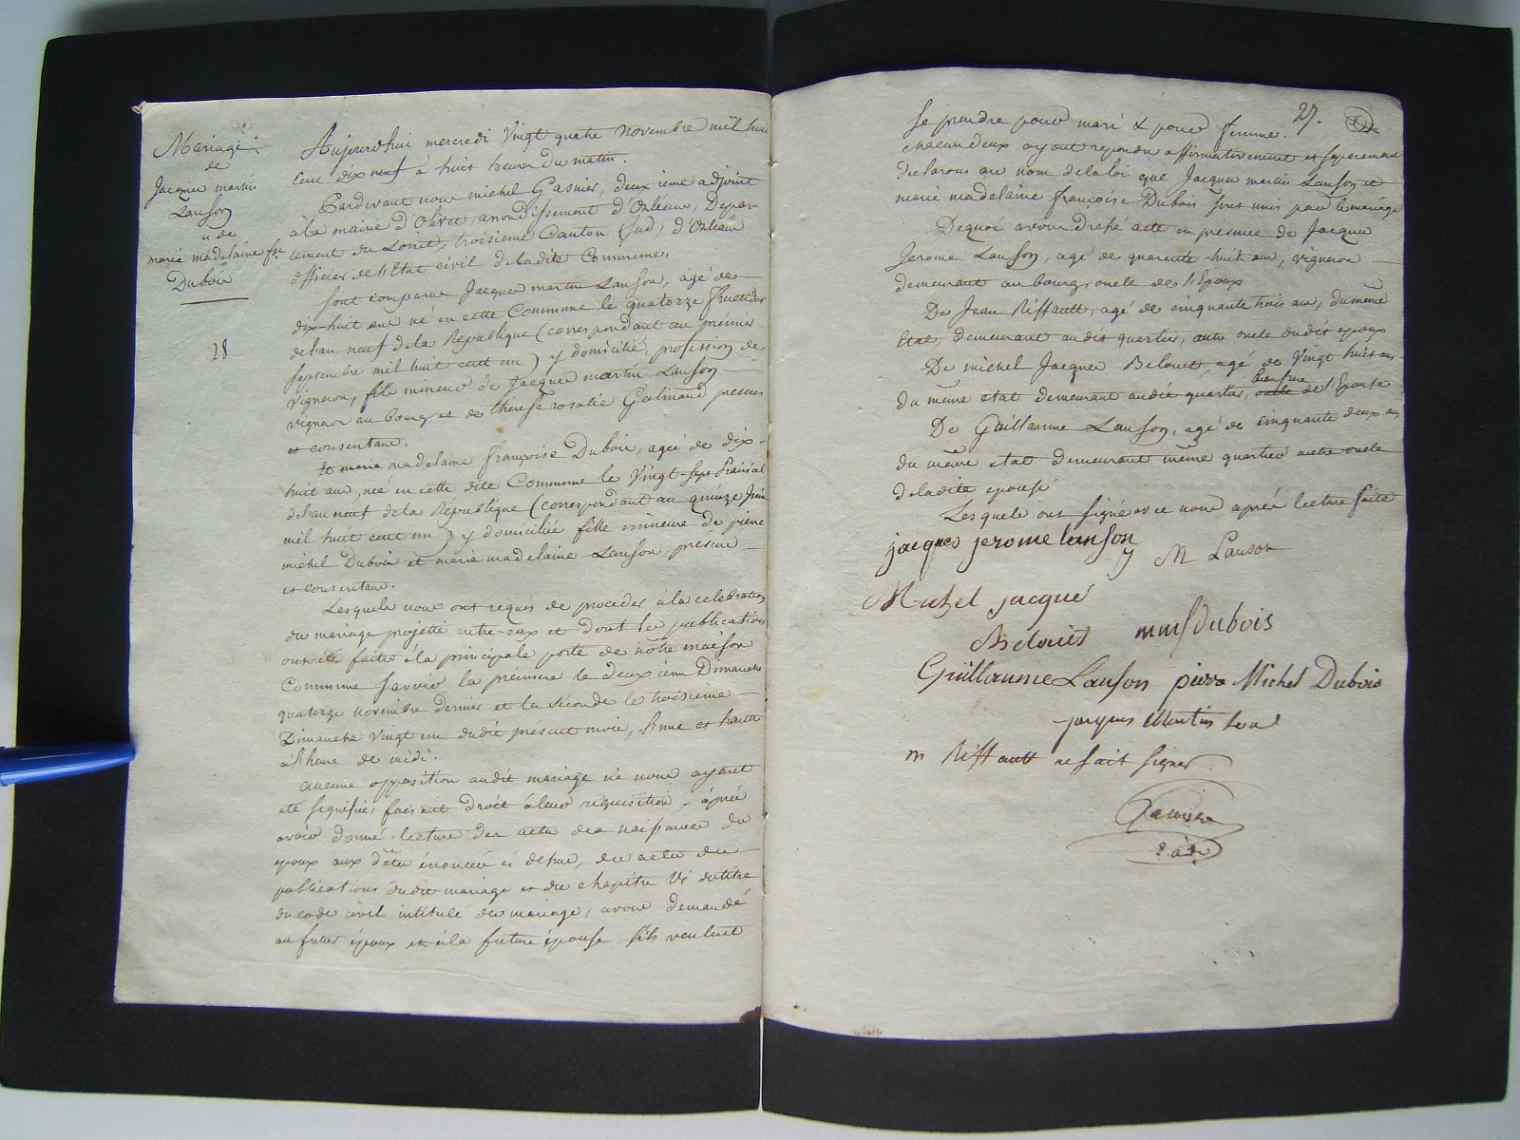 Mariage
de
Jacques martin
Lanson
& de
marie madelaine fse
Dubois
28
Aujourdhui mercredi Vingt quatre novembre mil huit
Cent dix neuf à huit heures du matin.
Pardevant nous michel Gasnier, deuxieme adjoint
à la mairie d'Olivet, arrondissement d'Orléans, Depar-
tement du Loiret, troisieme Canton (Sud) d'Orléans
officier de l'Etat civil de ladite Commune,
Sont comparus Jacques martin Lanson, agé de
dix-huit ans né en cette Commune le quatorze fructidor
de l'an neuf de la République (correspondant au premier
septembre mil huit cent un) y domicilié, profession de
Vigneron, fils mineur de Jacques martin Lanson
vigneron au bourg et de thérèse rosalie Galinand presens
et consentans.
Et marie madelaine françoise Dubois, agée de dix-
huit ans, née en cette dite Commune le Vingt-Sept Prairial
de l'an neuf de la République (correspondant au quinze Juin
mil huit cent un) y domiciliée fille mineure de pierre
michel Dubois et marie madelaine Lanson, presens
et consentans.
Lesquels nous ont requis de proceder à la celebration
du mariage projetté entre eux et dont les publications
ont été faites à la principale porte de notre maison
Commune Savoir la premiere le deuxième Dimanche
quatorze novembre dernier et la seconde le troisieme
Dimanche vingt un dudit present mois, Anne et haute
à l'heure de midi.
Aucune opposition audit mariage ne nous ayant
eté signifiée, faisant droit à leur requisition, après
avoir donné lecture des actes des naissances des
epoux aux dates énoncées ci dessus, des actes des
publications dudit mariage et du chapitre VI du titre
du code civil intitulé du mariage, avons demandé
au futur époux et à la future épouse s'ils veulent
27.
se prendre pour mari & pour femme.
chacun d'eux ayant repondu affirmativement et séparement
declarons au nom de la loi que Jacques martin Lanson et
marie madelaine françoise Dubois sont unis par le mariage
Dequoi avons dressé acte en presence de Jacques
Jerome Lanson, agé de quarante-huit ans, vigneron
demeurant au bourg, oncle de l'Epoux
De Jean Riffault, agé de cinquante trois ans, du même
Etat, demeurant audit quartier, autre oncle dudit epoux
De michel Jacques Belouet, agé de Vingt huit ans
du même etat demeurant audit quartier, oncle beaufrere de l'Epouse
De Guillaume Lanson, agé de cinquante deux ans
du même etat demeurant même quartier autre oncle
de ladite epouse
Lesquels ont signé avec nous après lecture faite
jacques jerome lanson
M Lanson
Michel jacque
Belouet
mmf dubois
Guillaume Lanson
pierre Michel Dubois
jacques Martin
m Riffault ne sait signer.
Gasnier